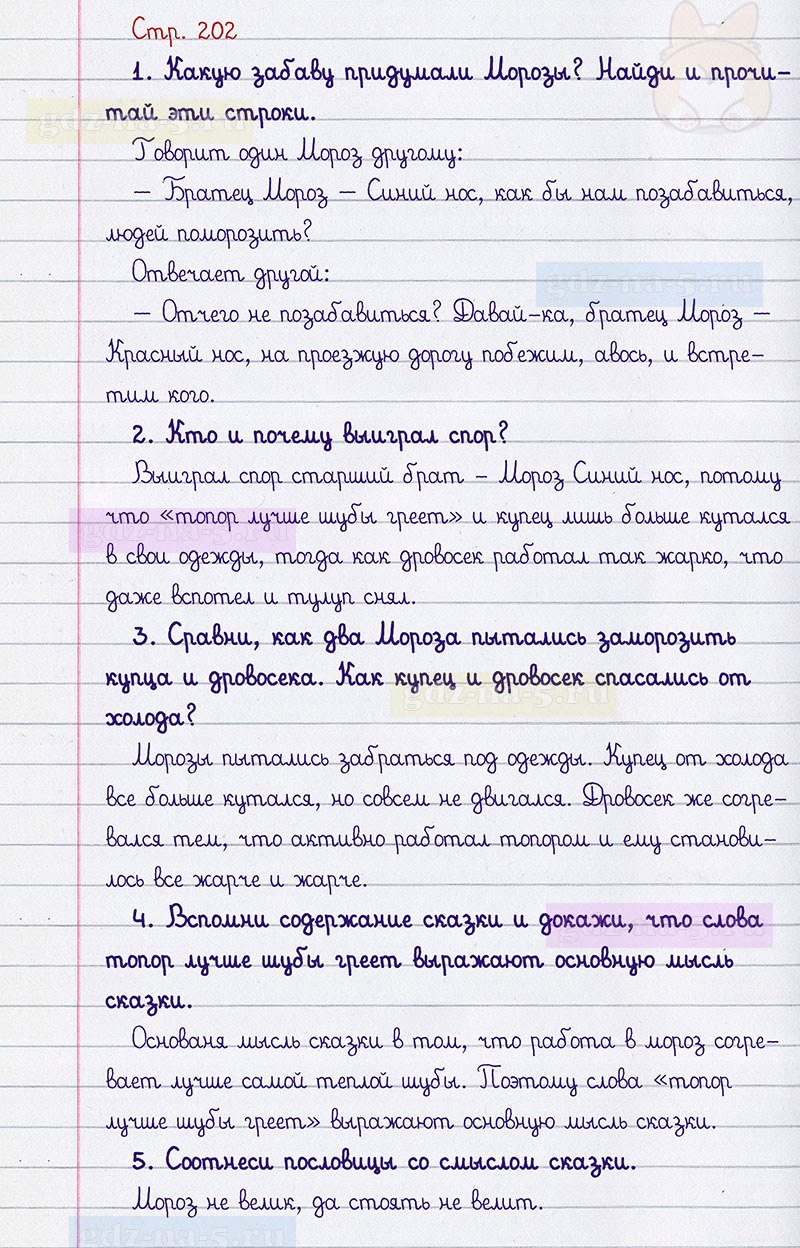 Стр. 202
1. Какую забаву придумали Морозы? Найди и прочи-
тай эти строки.
gdz-na-5.ru
Говорит один Мороз другому:
– Братец Мороз – Синий нос, как бы нам позабавиться,
людей поморозить?
Отвечает другой:
gdz-na-5.ru
– Отчего не позабавиться? Давай-ка, братец Мороз –
Красный нос, на проезжую дорогу побежим, авось, и встре-
тим кого.
2. Кто и почему выиграл спор?
Выиграл спор старший брат – Мороз Синий нос, потому
что «топор лучше шубы греет» и купец лишь больше кутался
gdz-na-5.ru
в свои одежды, тогда как дровосек работал так жарко, что
даже вспотел и тулуп снял.
3. Сравни, как два Мороза пытались заморозить
купца и дровосека. Как купец и дровосек спасались от
gdz-na-5.ru
холода?
Морозы пытались забраться под одежды. Купец от холода
все больше кутался, но совсем не двигался. Дровосек же согре-
вался тем, что активно работал топором и ему станови-
лось все жарче и жарче.
4. Вспомни содержание сказки и докажи, что слова
gdz-na-5.ru
топор лучше шубы греет выражают основную мысль
сказки.
Основаня мысль сказки в том, что работа в мороз согре-
вает лучше самой теплой шубы. Поэтому слова «топор
лучше шубы греет» выражают основную мысль сказки.
5. Соотнеси пословицы со смыслом сказки.
Мороз не велик, да стоять не велит.
gdz-na-5.ru